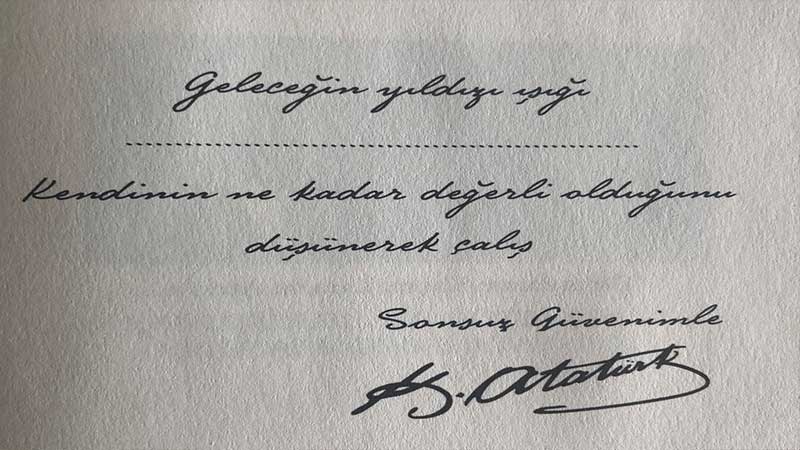 Geleceğin yıldızı ışığı
Kendinin ne kadar değerli olduğunu
düşünerek çalış
Sonsuz Güvenimle
K. Atatürk